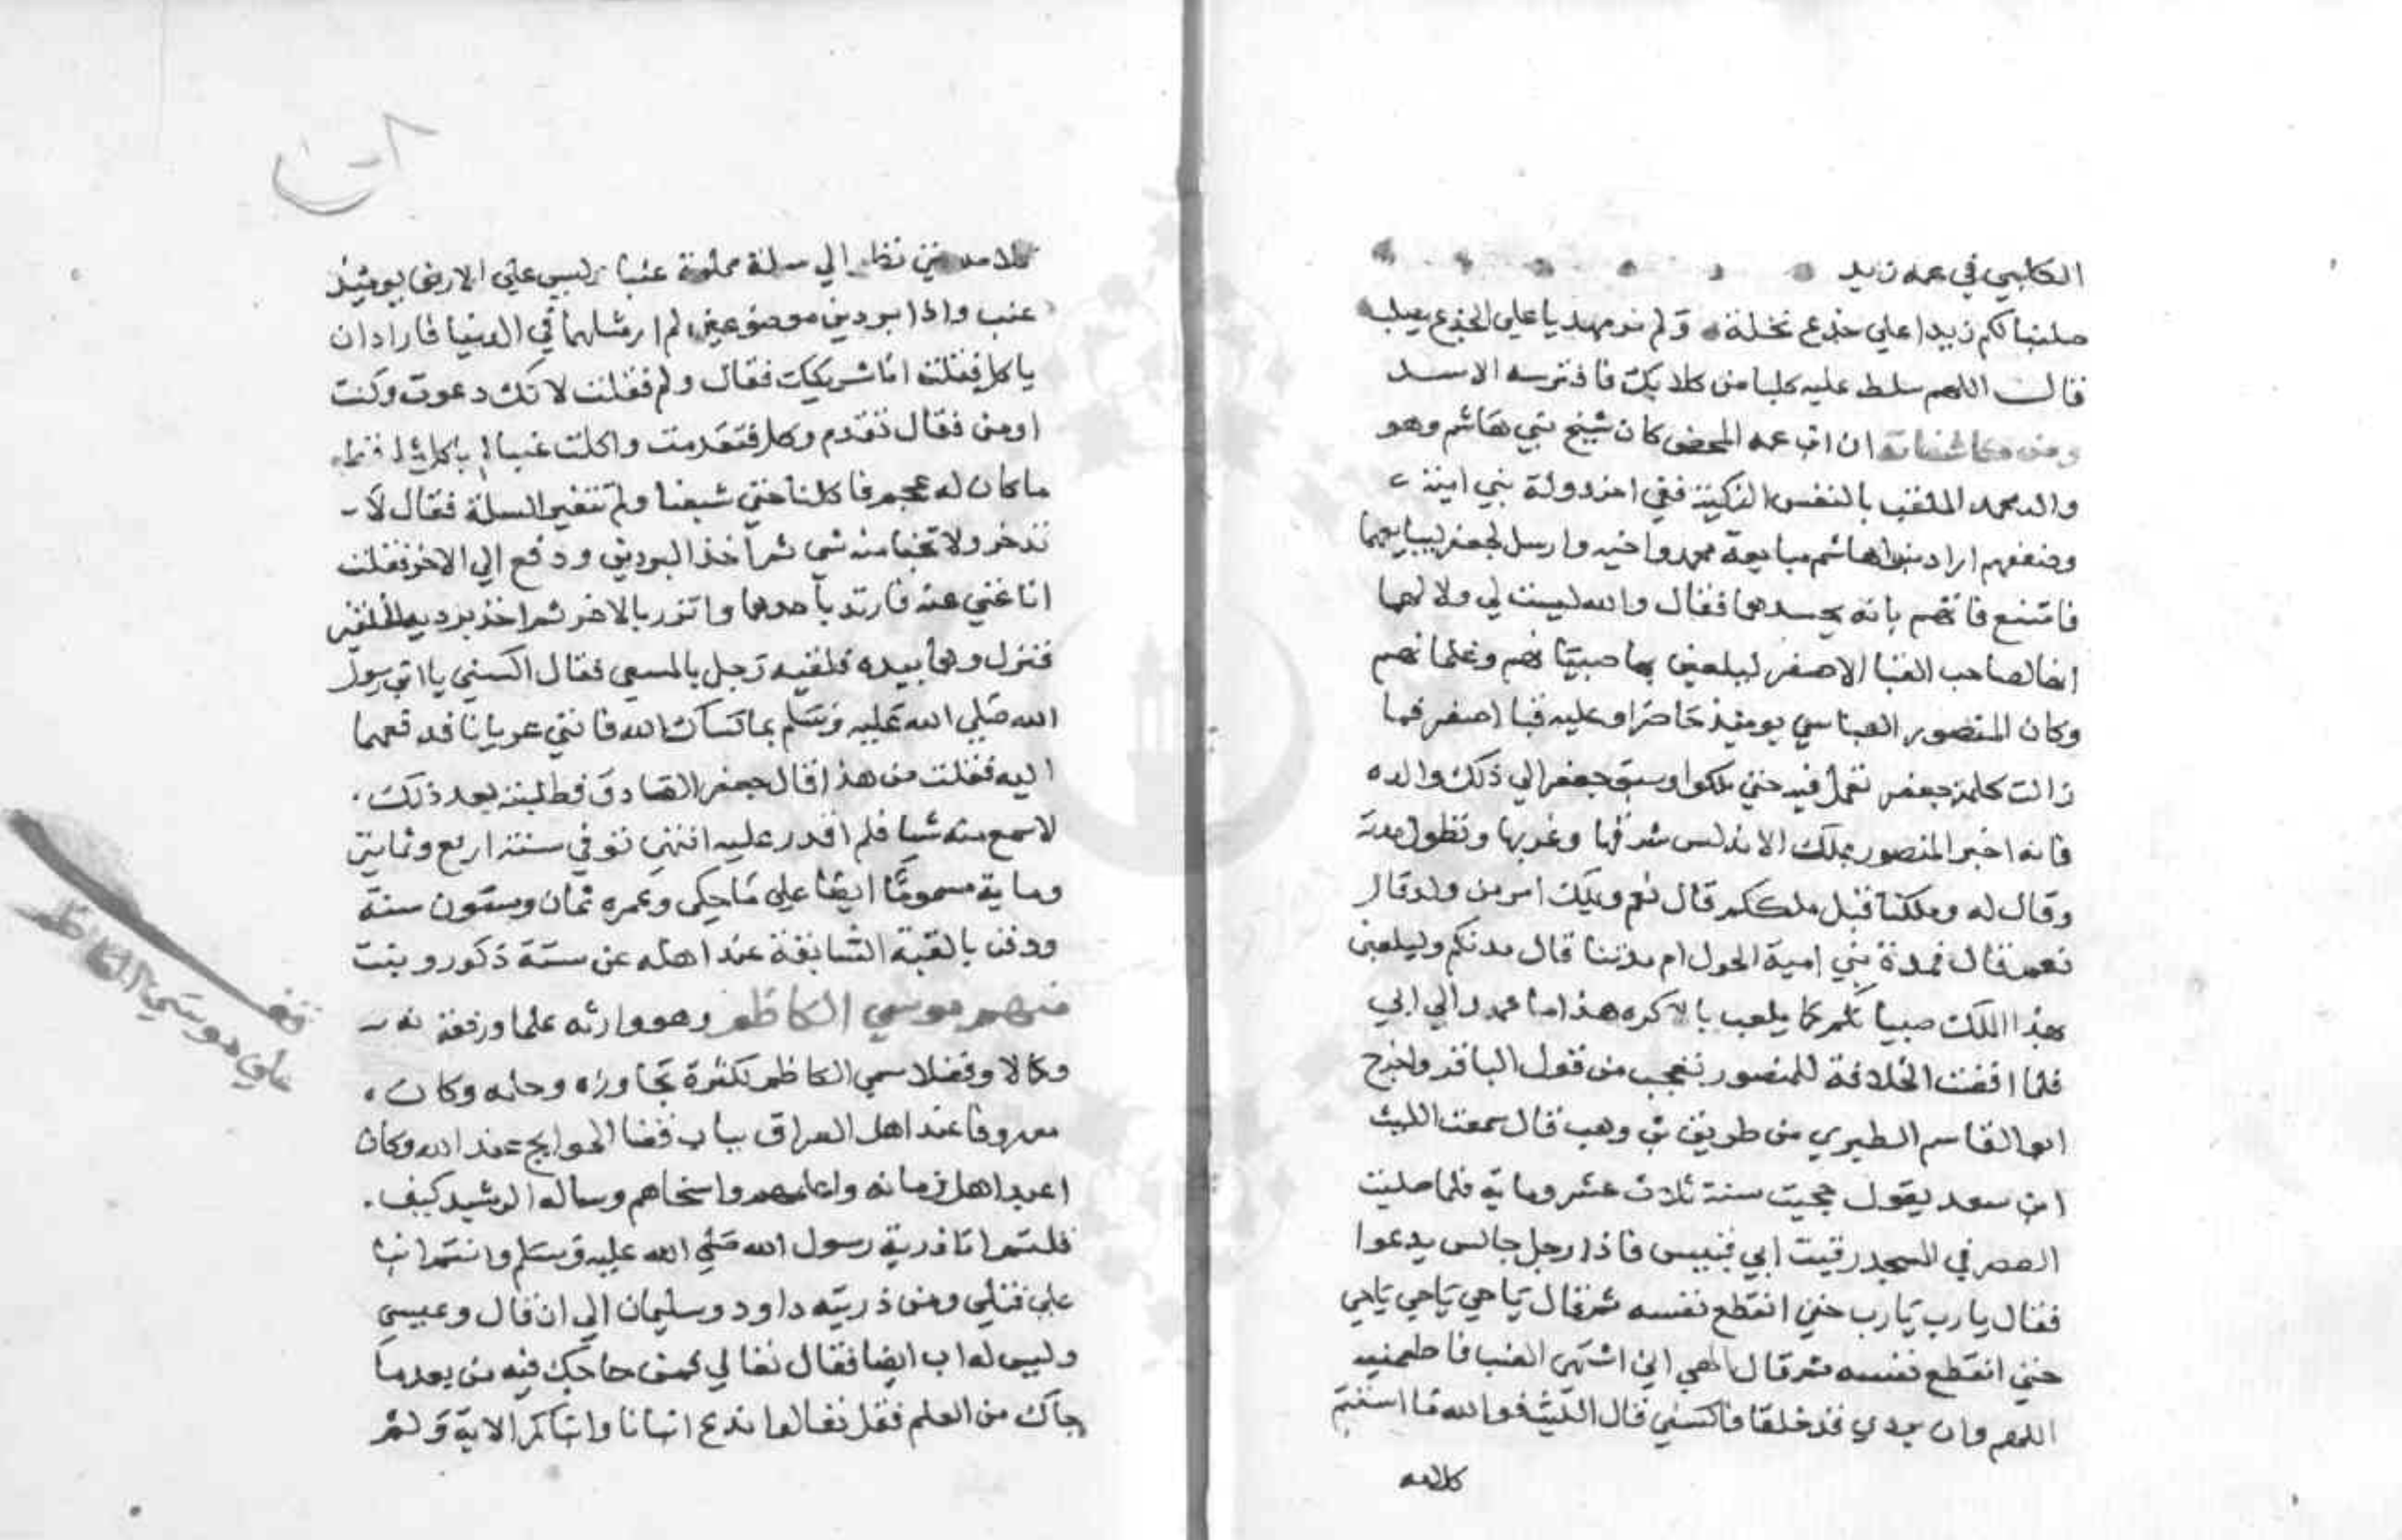 الكلبي في عمه زيد
صلبنا لكم زيدا علي جذع نخلة ولم نر مهديا علي الجذع يصلب
قال اللهم سلط عليه كلبا من كلابك فافترسه الاسد
ومن مكاشفاته ان ابن عمه المحض كان شيخ بني هاشم وهو
والد محمد الملقب بالنفس الزكية ففي اخر دولة بني امية
وضعفهم اراد بنوا هاشم مبايعة محمد واخيه وارسل لجعفر ليبايعهما
فامتنع فاتهم بانه يحسدهما فقال والله ليست لي ولا لهما
انها لصاحب القبا الاصفر ليلعبن بها صبيانهم وغلمانهم
وكان المنصور العباسي يومئذ حاضرا وعليه قبا اصفر فما
زالت كلمة جعفر تعمل فيه حتي ملكوا وسبق جعفر الي ذلك والده
فانه اخبر المنصور بملك الارض شرقها وغربها وتطول مدته
وقال له وملكنا قبل ملككم قال نعم ويملك احد من ولدي قال
نعم قال فمدة بني امية اطول ام مدتنا قال مدتكم وليلعبن
بهذا الملك صبيانكم كما يلعب بالاكره هذا ما عهد الي ابي
فلما افضت الخلافة للمنصور تعجب من قول الباقر واخرج
ابو القاسم الطبري من طريق بن وهب قال سمعت الليث
ابن سعد يقول حججت سنة ثلاث عشر وماية فلما صليت
العصر في المسجد رقيت ابي قبيس فاذا رجل جالس يدعوا
فقال يا رب يا رب حتي انقطع نفسه ثم قال يا حي يا حي يا حي
حتي انقطع نفسه ثم قال الهي اني اشتهي العنب فاطعمنيه
اللهم وان بردي قد خلقا فاكسني قال الليث فوالله ما استتم
كلامه
كلامه حتي نظرت الي سلة مملوة عنبا وليس علي الارض يومئذ
عنب واذا ببردين موضوعين لم ار مثلهما في الدنيا فاراد ان
ياكل فقلت انا شريكك فقال ولم فقلت لانك دعوت وكنت
اومن فقال تقدم وكل فتقدمت واكلت عنبا لم اكل مثله قط
ما كان له عجم فاكلنا حتي شبعنا ولم تتغير السلة فقال لا
تدخر ولا تخبا منه شي ثم اخذ البردين ودفع الي الاخر فقلت
انا غني عنه فارتد باحدهما واتزر بالاخر ثم اخذ برديه الخلقين
فنزل وهما بيده فلقيه رجل بالمسعي فقال اكسني يا ابن رسول
الله صلي الله عليه وسلم بما كساك الله فانني عريانا فدفعهما
اليه فقلت من هذا قال جعفر الصادق فطلبته بعد ذلك
لاسمع منه شيا فلم اقدر عليه انتهي توفي سنة اربع وثمانين
وماية مسموما ايضا علي ما حكي وعمره ثمان وستون سنة
ودفن بالقبة السابقة عند اهله عن ستة ذكور وبنت
منهم موسي الكاظم وهو وارثه علما ورفعة
وكمالا وفضلا سمي الكاظم لكثرة تجاوزه وحلمه وكان
معروفا عند اهل العراق بباب قضا الحوايج عند الله وكان
اعبد اهل زمانه واعلمهم واسخاهم وساله الرشيد كيف
قلتم انا ذرية رسول الله صلي الله عليه وسلم وانتم ابنا
علي فتلي ومن ذريته داود وسليمان الي ان قال وعيسي
وليس له اب ايضا فقال تعالي فمن حاجك فيه من بعد ما
جاك من العلم فقل تعالوا ندع ابنانا وابناكم الاية ولم
قف
علي موسي الكاظم